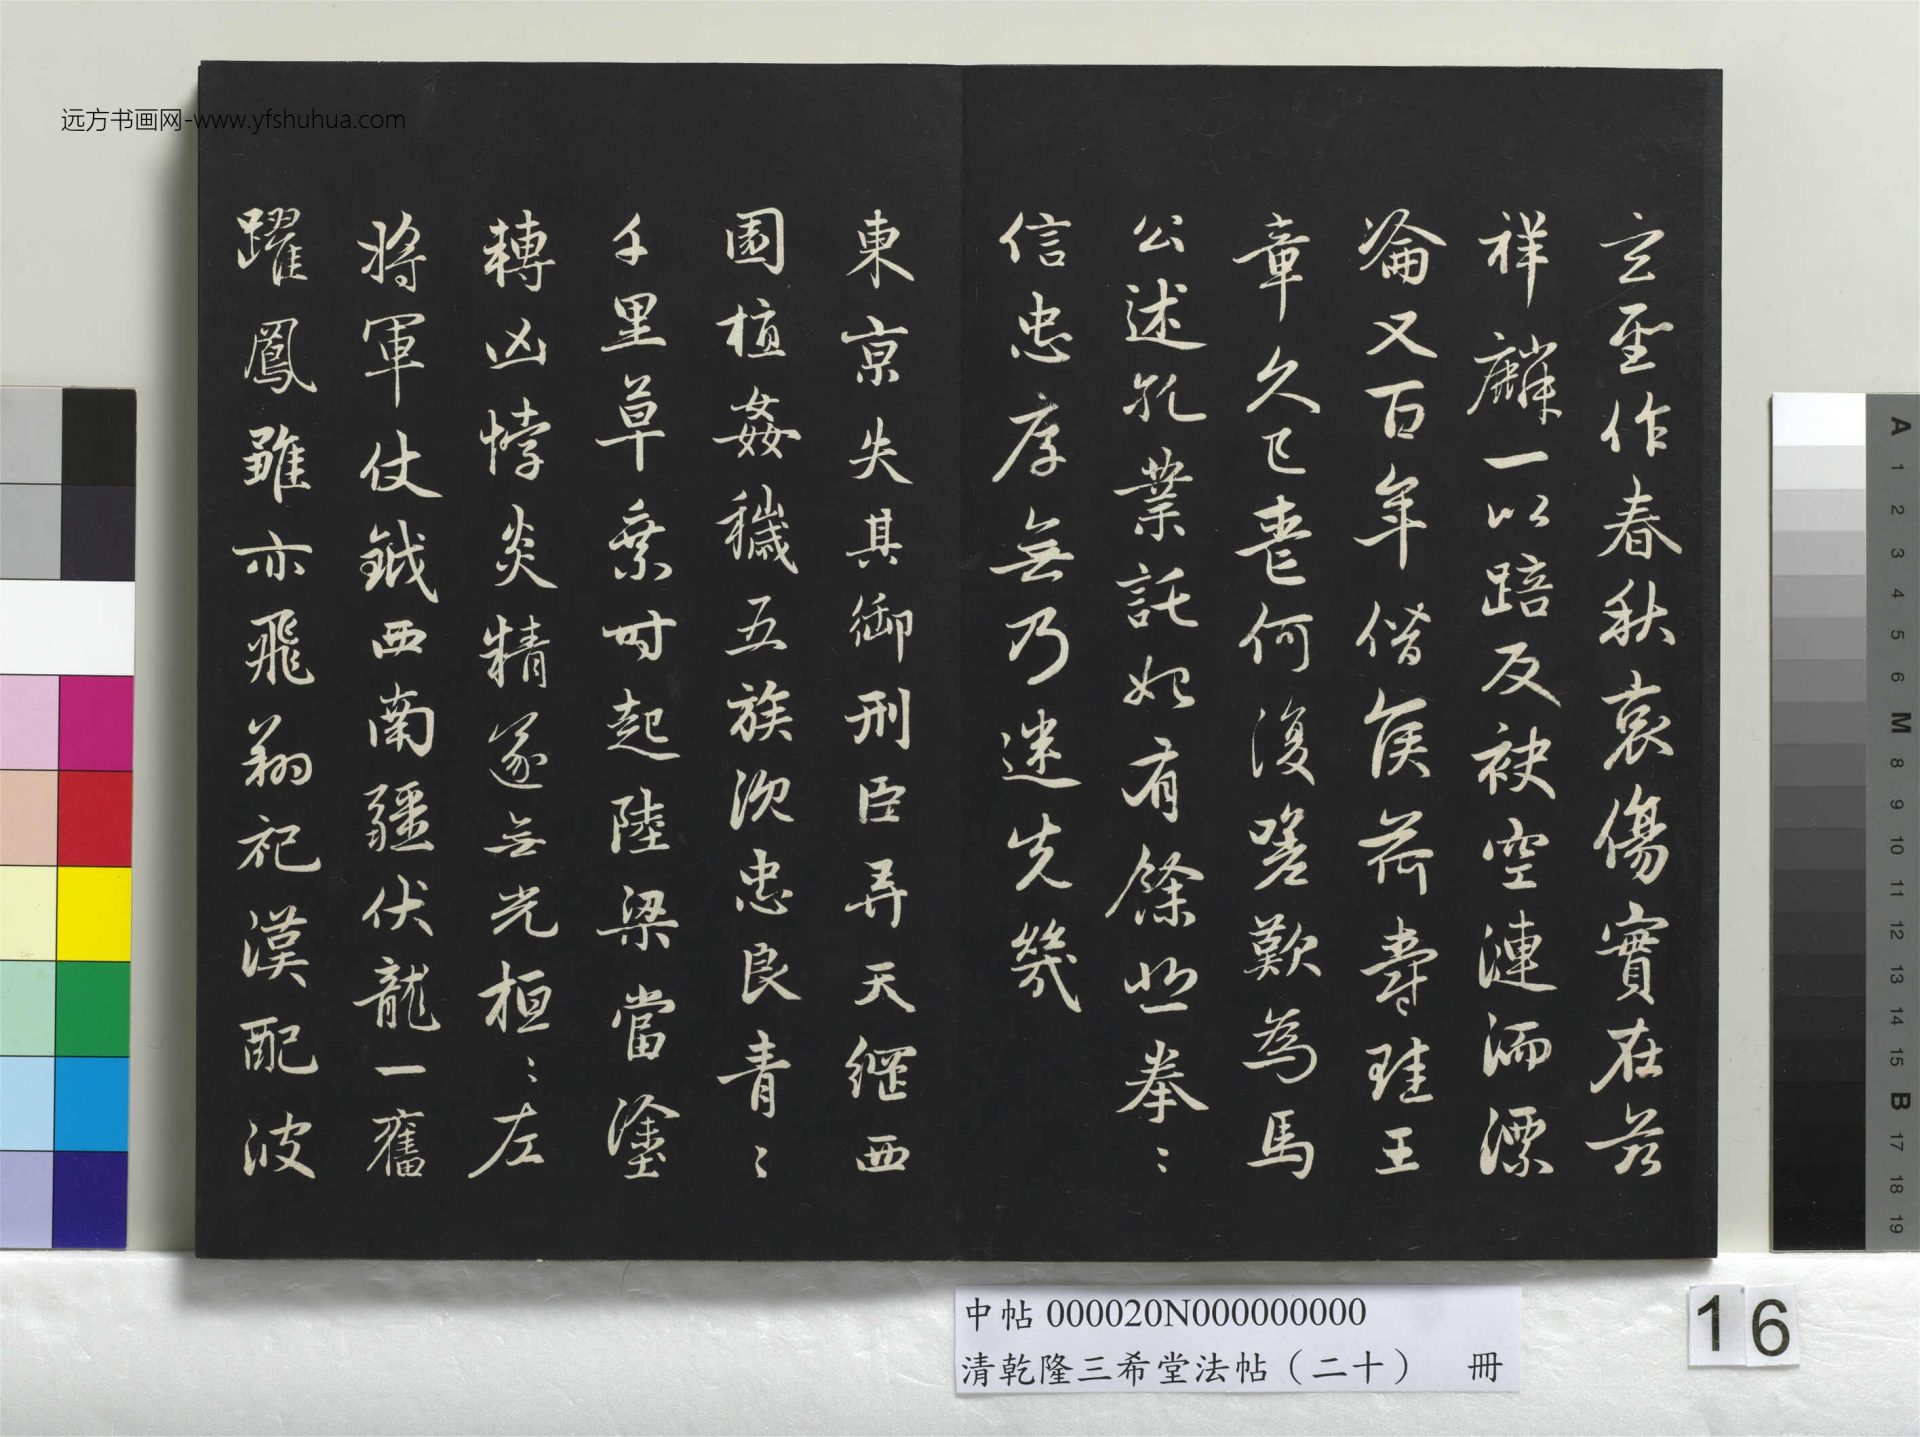 玄聖作春秋哀傷實在茲
祥麟一以踣反袂空漣洏漂
淪又百年僭侯荷壽珪王
章久已喪何復嗟歎為馬
公述孔業託始有餘悲拳〻
信忠厚無乃迷先幾
東京失其御刑臣弄天綱西
園植姦穢五族沉忠良青〻
千里草乘时起陸梁當塗
轉凶悖炎精遂無光桓〻左
將軍仗鉞西南疆伏龍一奮
躍鳳雛亦飛翔祀漢配彼
远方书画网-www.yfshuhua.com
中帖 000020N000000000
清乾隆三希堂法帖（二十） 冊
16
A
1
2
3
4
5
6
M
8
9
10
11
12
13
14
15
B
17
18
19